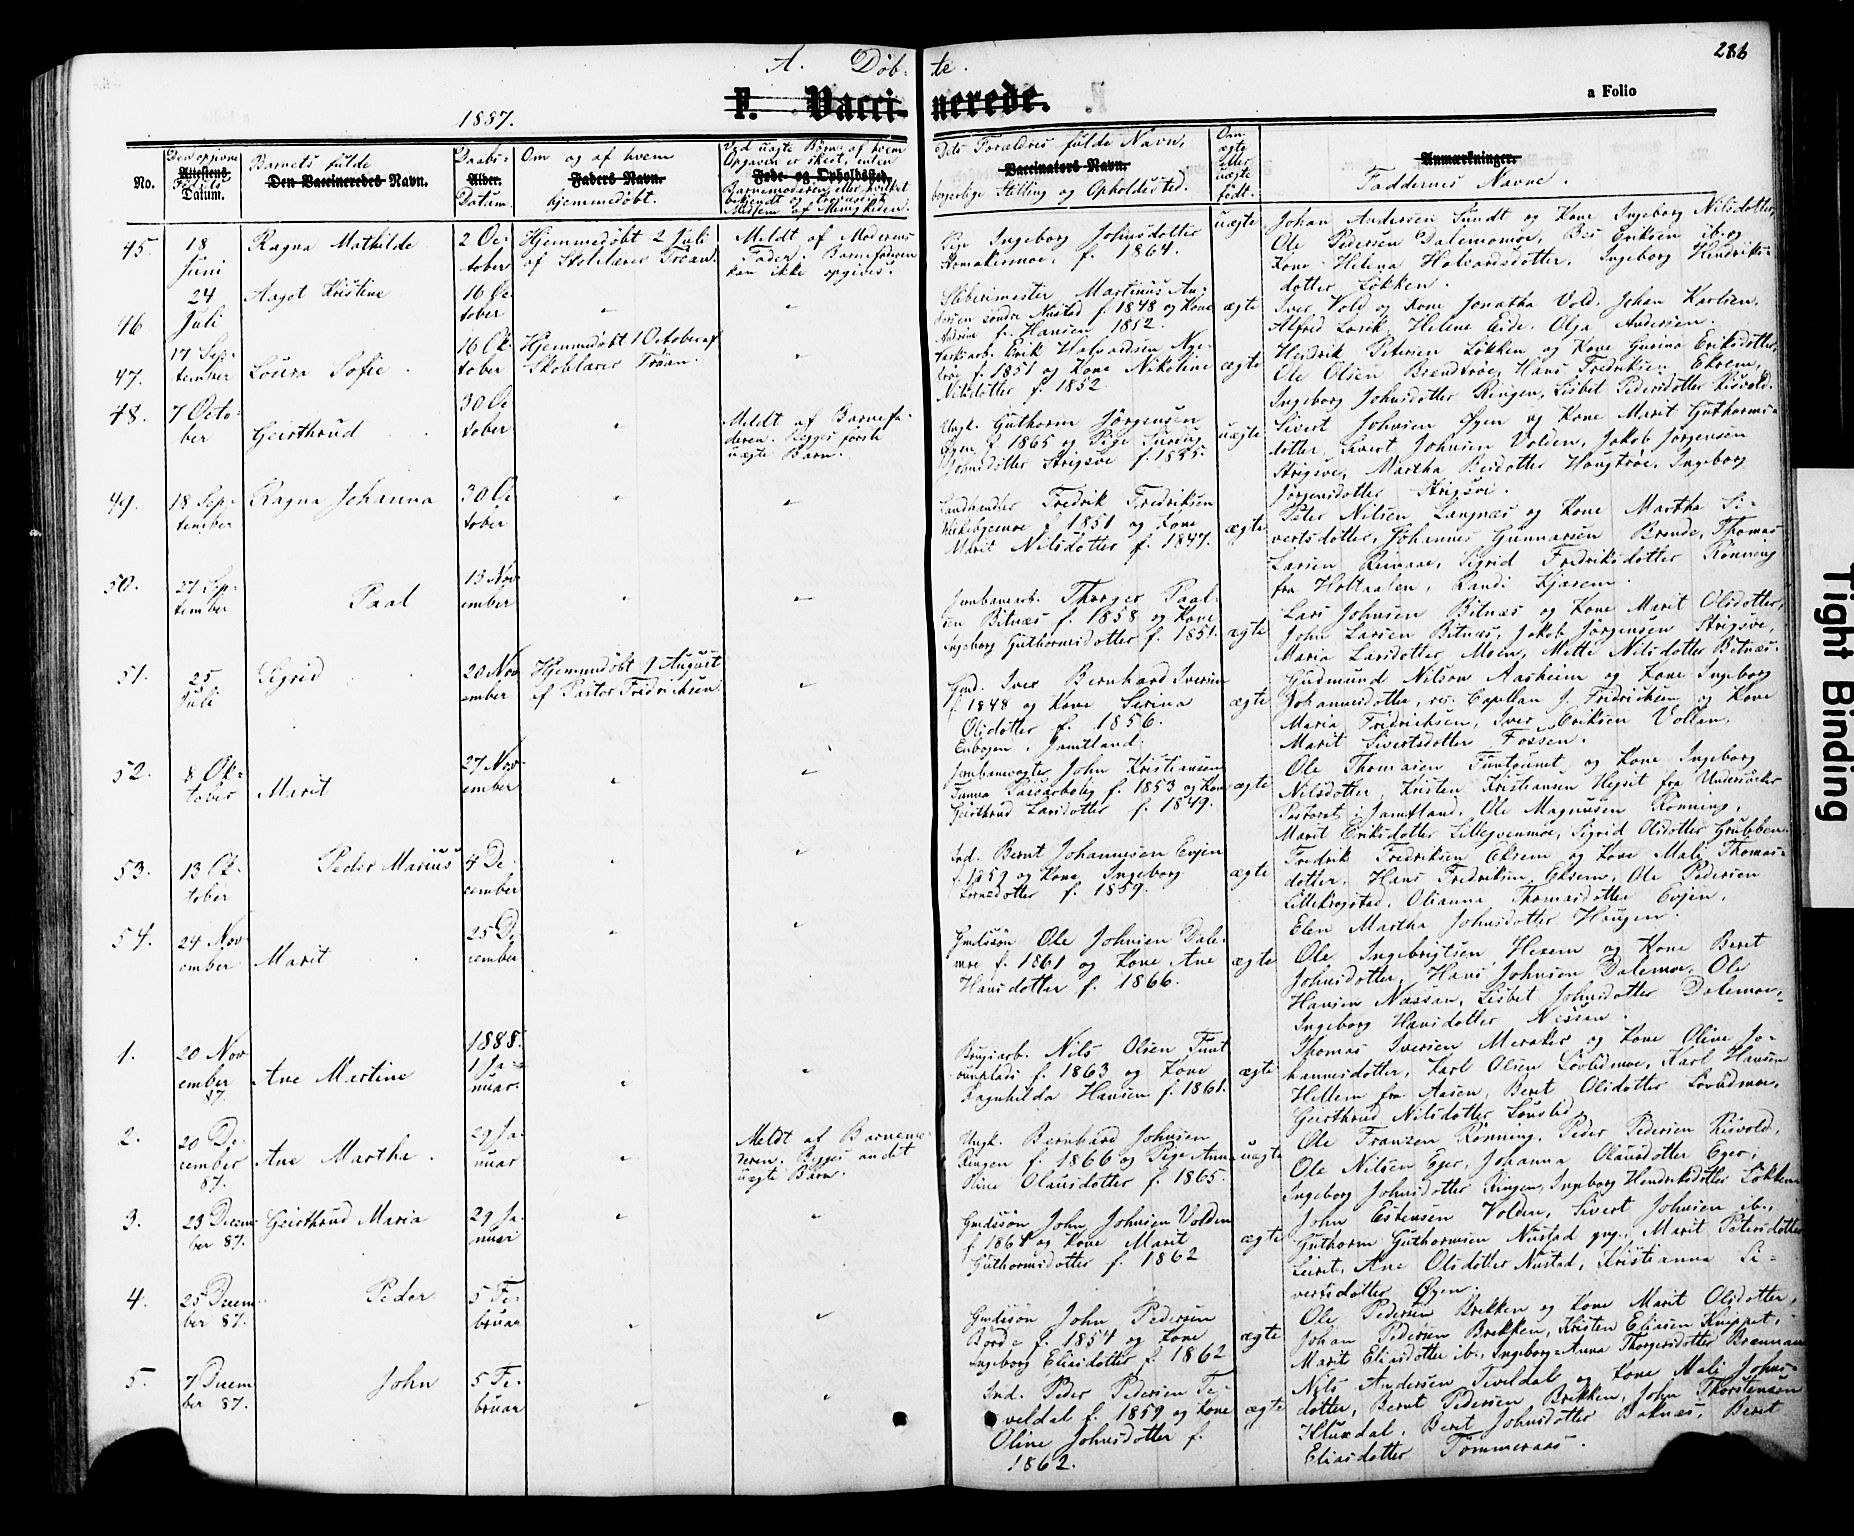 A. Døb- te.
286
F. Vacci- nerede.
a Folio
1887.
No.
Den opgivne
Attestens
Fødsels
Datum.
Barnets fulde
Den Vaccineredes Navn.
Daabs-
Alder.
Datum
Om og af hvem
Faders Navn.
hjemmedøbt.
Ved uægte Børn: af hvem
Opgaven er skeet, enten
Føde- og Opholdssted.
Barnemoderen, eller hvilket
bekjendt og troværdigt
Medlem af Menigheden.
Dets Forældres fulde Navn,
Vaccinators Navn.
borgerlige Stilling og Opholdssted.
Om
ægte
eller
uægte
født.
Anmærkninger.
Faddernes Navne.
45.
18
Juni
Ragna Mathilde
2 Oc-
tober
Hjemmedøbt 2 Juli
af Skolelærer Trøan.
Meldt af Moderens
Fader. Barnefaderen
kan ikke opgives.
Pige Ingeborg Johnsdotter
f. 1864.
uægte
Johan Andersen Sundt og Kone Ingeborg Nilsdotter,
Ole Pedersen Dalemomoe, Eriksen ib. og
Kone Helena Halvardsdotter, Ingeborg Hendriks-
dotter Løkken.
46
24
Juli
Aagot Kristine
16 Oc-
tober
"
"
Sliberimester Martinus An-
dersen søndre Nustad f. 1848 og Kone
f. Hansen 1852.
ægte
Iver Vold og Kone Jonatha Vold, Johan Karlsen,
Alfred Helene Eide, Olga Andersen.
47.
17 Sep-
tember
Loura Sofie
16 Ok-
tober
Hjemmedøbt 1 October af
Skolelærer Trøan.
"
Erik Halvardsen Nye-
trøe f. 1851 og Kone Nikoline
Nilsdotter f. 1852
ægte
Hendrik Petersen Løkken og Kone Gurina Eriksdotter,
Ole Olsen Brendtrøe, Hans Fredriksen Eksem,
Ingeborg Johnsdotter Ringen, Lisbet Pedersdotter Risvold.
48.
7 Octo-
ber
Gjertrud
30 Oc-
tober
"
Meldt af Barnefa-
deren. Begges første
uægte Barn.
Ungk. Guthorm Jørgensen
Øyen f. 1865 og Pige
Johnsdotter Strigsve f.
uægte
Sivert Johnsen Øyen og Kone Marit Guthorms-
dotter, Sivert Johnsen Volden, Jakob Jørgensen
Strigsve, Martha Hougtrøe, Ingeborg
Jørgensdotter Strigsve.
49.
18 Sep-
tember
Ragna Johanna
30 Oc-
tober
"
"
Landhandler Fredrik Fredriksen
f. 1851 og Kone
Marit Nilsdotter f. 1847.
ægte
Peter Nilsen Langnæs og Kone Martha Si-
vertsdotter, Johannes Gunnarsen Brende, Thomas
Larsen Sigrid Fredriksdotter Rønning
fra Holtaalen, Randi Kjøsem.
50.
27 Sep-
tember
Paal
13 Nov-
ember
"
"
Jernbanearb. Thorger Paal-
sen Bitnæs f. 1858 og Kone
Ingeborg Guthormsdotter f. 1851.
ægte
Lars Johnsen Bitnæs og Kone Marit Olsdotter,
John Larsen Bitnæs, Jakob Jørgensen Strigsve,
Maria Larsdotter Moen, Mette Nilsdotter Bitnæs.
51.
25
Juli
Sigrid
20 Nov
ember
Hjemmedøbt 9 August
af Pastor Fredriksen.
"
Gmd. Iver Bernhard Iversen
f. 1848 og Kone Serina
Olsdotter f. 1856.
Enbogen, Jamtland.
ægte
Gudmund Nilsen Aasheim og Kone Ingeborg
Johannesdotter, res. Capellan J. Fridrichsen og Kone
Maria Fridrichsen, Iver Eriksen Vollan,
Marit Sivertsdotter Fossen.
52.
8 Ok-
tober
Marit
27 Nov-
ember
"
"
Jernbanevogter John Kristiansen
f. 1853 og Kone
Gjertrud Larsdotter f. 1849.
ægte
Ole Thomasen Funtaunet og Kone Ingeborg
Nilsdotter, Kristen Kristiansen Hejset fra Undersaker
Pastorat i Jamtland, Ole Magnusen Rønning,
Marit Eriksdotter Lillegvenmoe, Sigrid Olsdotter Grubben.
53.
13 Ok-
tober
Peder Marius
4 De-
cember
"
"
Ind. Bernt Johannesen Evjen
f. 1859 og Kone Ingeborg
f. 1859.
ægte
Fredrik Fredriksen Eksem og Kone Mali Thomas-
dotter, Hans Fredriksen Eksem, Ole Pedersen
Lillekrogstad, Olianna Thomasdotter Evjen,
Elen Martha Johnsdotter Haugen.
54.
24 Nov
ember
Marit
25 De-
cember
"
"
Gmdssøn Ole Johnsen Dale-
moe f. 1861 og Kone Ane
Hansdotter f. 1866.
ægte
Ole Ingebrigtsen Hexem og Kone Beret
Johnsdotter, Hans Johnsen Dalemoe, Ole
Hansen Næssan, Lisbet Johnsdotter Dalemoe,
Ingeborg Hansdotter Nessan.
1.
20 Nov
ember
87.
Ane Martine
1888.
1 Ja-
nuar.
"
"
Brugsarb. Nils Olsen Funt
aunplads f. 1863 og Kone
Ragnhilda Hansen f. 1861.
ægte
Thomas Iversen Meraker og Kone Oline Jo-
hannesdotter, Karl Olsen Løvlidmoe, Karl Hansen
Hellem fra Aasen, Beret Olsdotter Løvlidmoe,
Gjertrud Nilsdotter
2.
20 De-
cember
87.
Ane Martha.
29 Ja-
nuar
"
Meldt af Barnemo-
deren. Begges andet
uægte Barn.
Ungk. Bernhard Johnsen
Ringen f. 1866 og Pige Anna
Oline Olausdotter f. 1865.
uægte
Ole Franzen Rønning, Peder Pedersen Risvold,
Ole Nilsen Eger, Johanna Olausdotter Eger,
Ingeborg Johnsdotter Ringen, Ingeborg Hendriksdotter Løkken
3.
23 Decem-
ber 87.
Gjertrud Maria
29 Ja-
nuar
"
"
Gmdssøn John Johnsen Volden
f. 1864 og Kone Marit
Guthormsdotter f. 1862
ægte
John Estensen Volden, Sivert Johnsen ib.,
Guthorm Guthormsen Nustad gvg., Marit Petersdotter
Ane Olsdotter Nustad, Kristianna Si-
vertsdotter Øyen.
4.
25 Decem-
ber 87.
Peder
5 Fe-
bruar
"
"
Gmdssøn John Pedersen
f. 1854 og Kone
Ingeborg Eliasdotter f. 1862
ægte
Ole Pedersen Brekken og Kone Marit Olsdotter,
Johan Pedersen Brekken, Kristen Eliasen Knippet,
Marit Eliasdotter ib., Ingeborg Anna Thorgersdotter Brennaune
5.
7 Decem
ber 87.
John
5 Fe-
bruar
"
"
Ind. Peder Pedersen Te-
veldal f. 1859 og Kone
Oline Johnsdotter f.
1862.
ægte
Nils Andersen Teveldal og Kone Mali Johns-
dotter, Bernt Pedersen Brekken, John Thorstensen
Kluxdal, Beret Johnsdotter Baknæs, Beret
Eliasdotter Tømmeraas.
Tight Binding